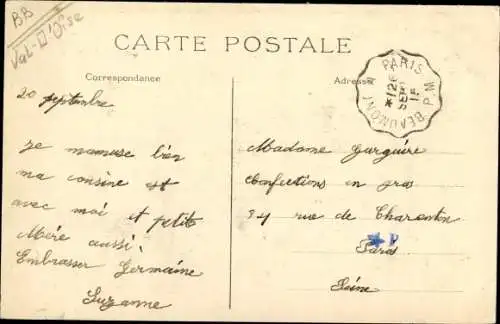 BB
Val-D'Oise
CARTE POSTALE
Correspondance
Adresse
PARIS
BEAUMONT
P.M
20 septembre
Je mamuse bien
ma cousine est
avec moi et petite
Mère aussi.
Embrasser Germaine
Suzanne
Madame Garguire
Confections en gros
34 rue de Charenton
P
Paris
Seine